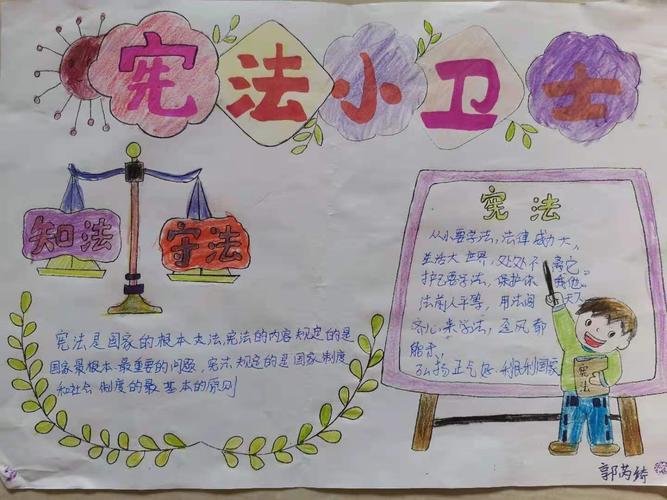 宪法小卫士
知法
守法
宪法是国家的根本大法,宪法的内容规定的是
国家最根本最重要的问题,宪法规定的是国家制度
和社会制度的最基本的原则
宪法
从小要学法,法律威力大,
生活大世界,处处不离它。
护己要学法,保护你我他。
法前人平等,用法闯天下
齐心来学法,逆风都
能手,
弘扬正气
利国家
宪法
郭芮绮